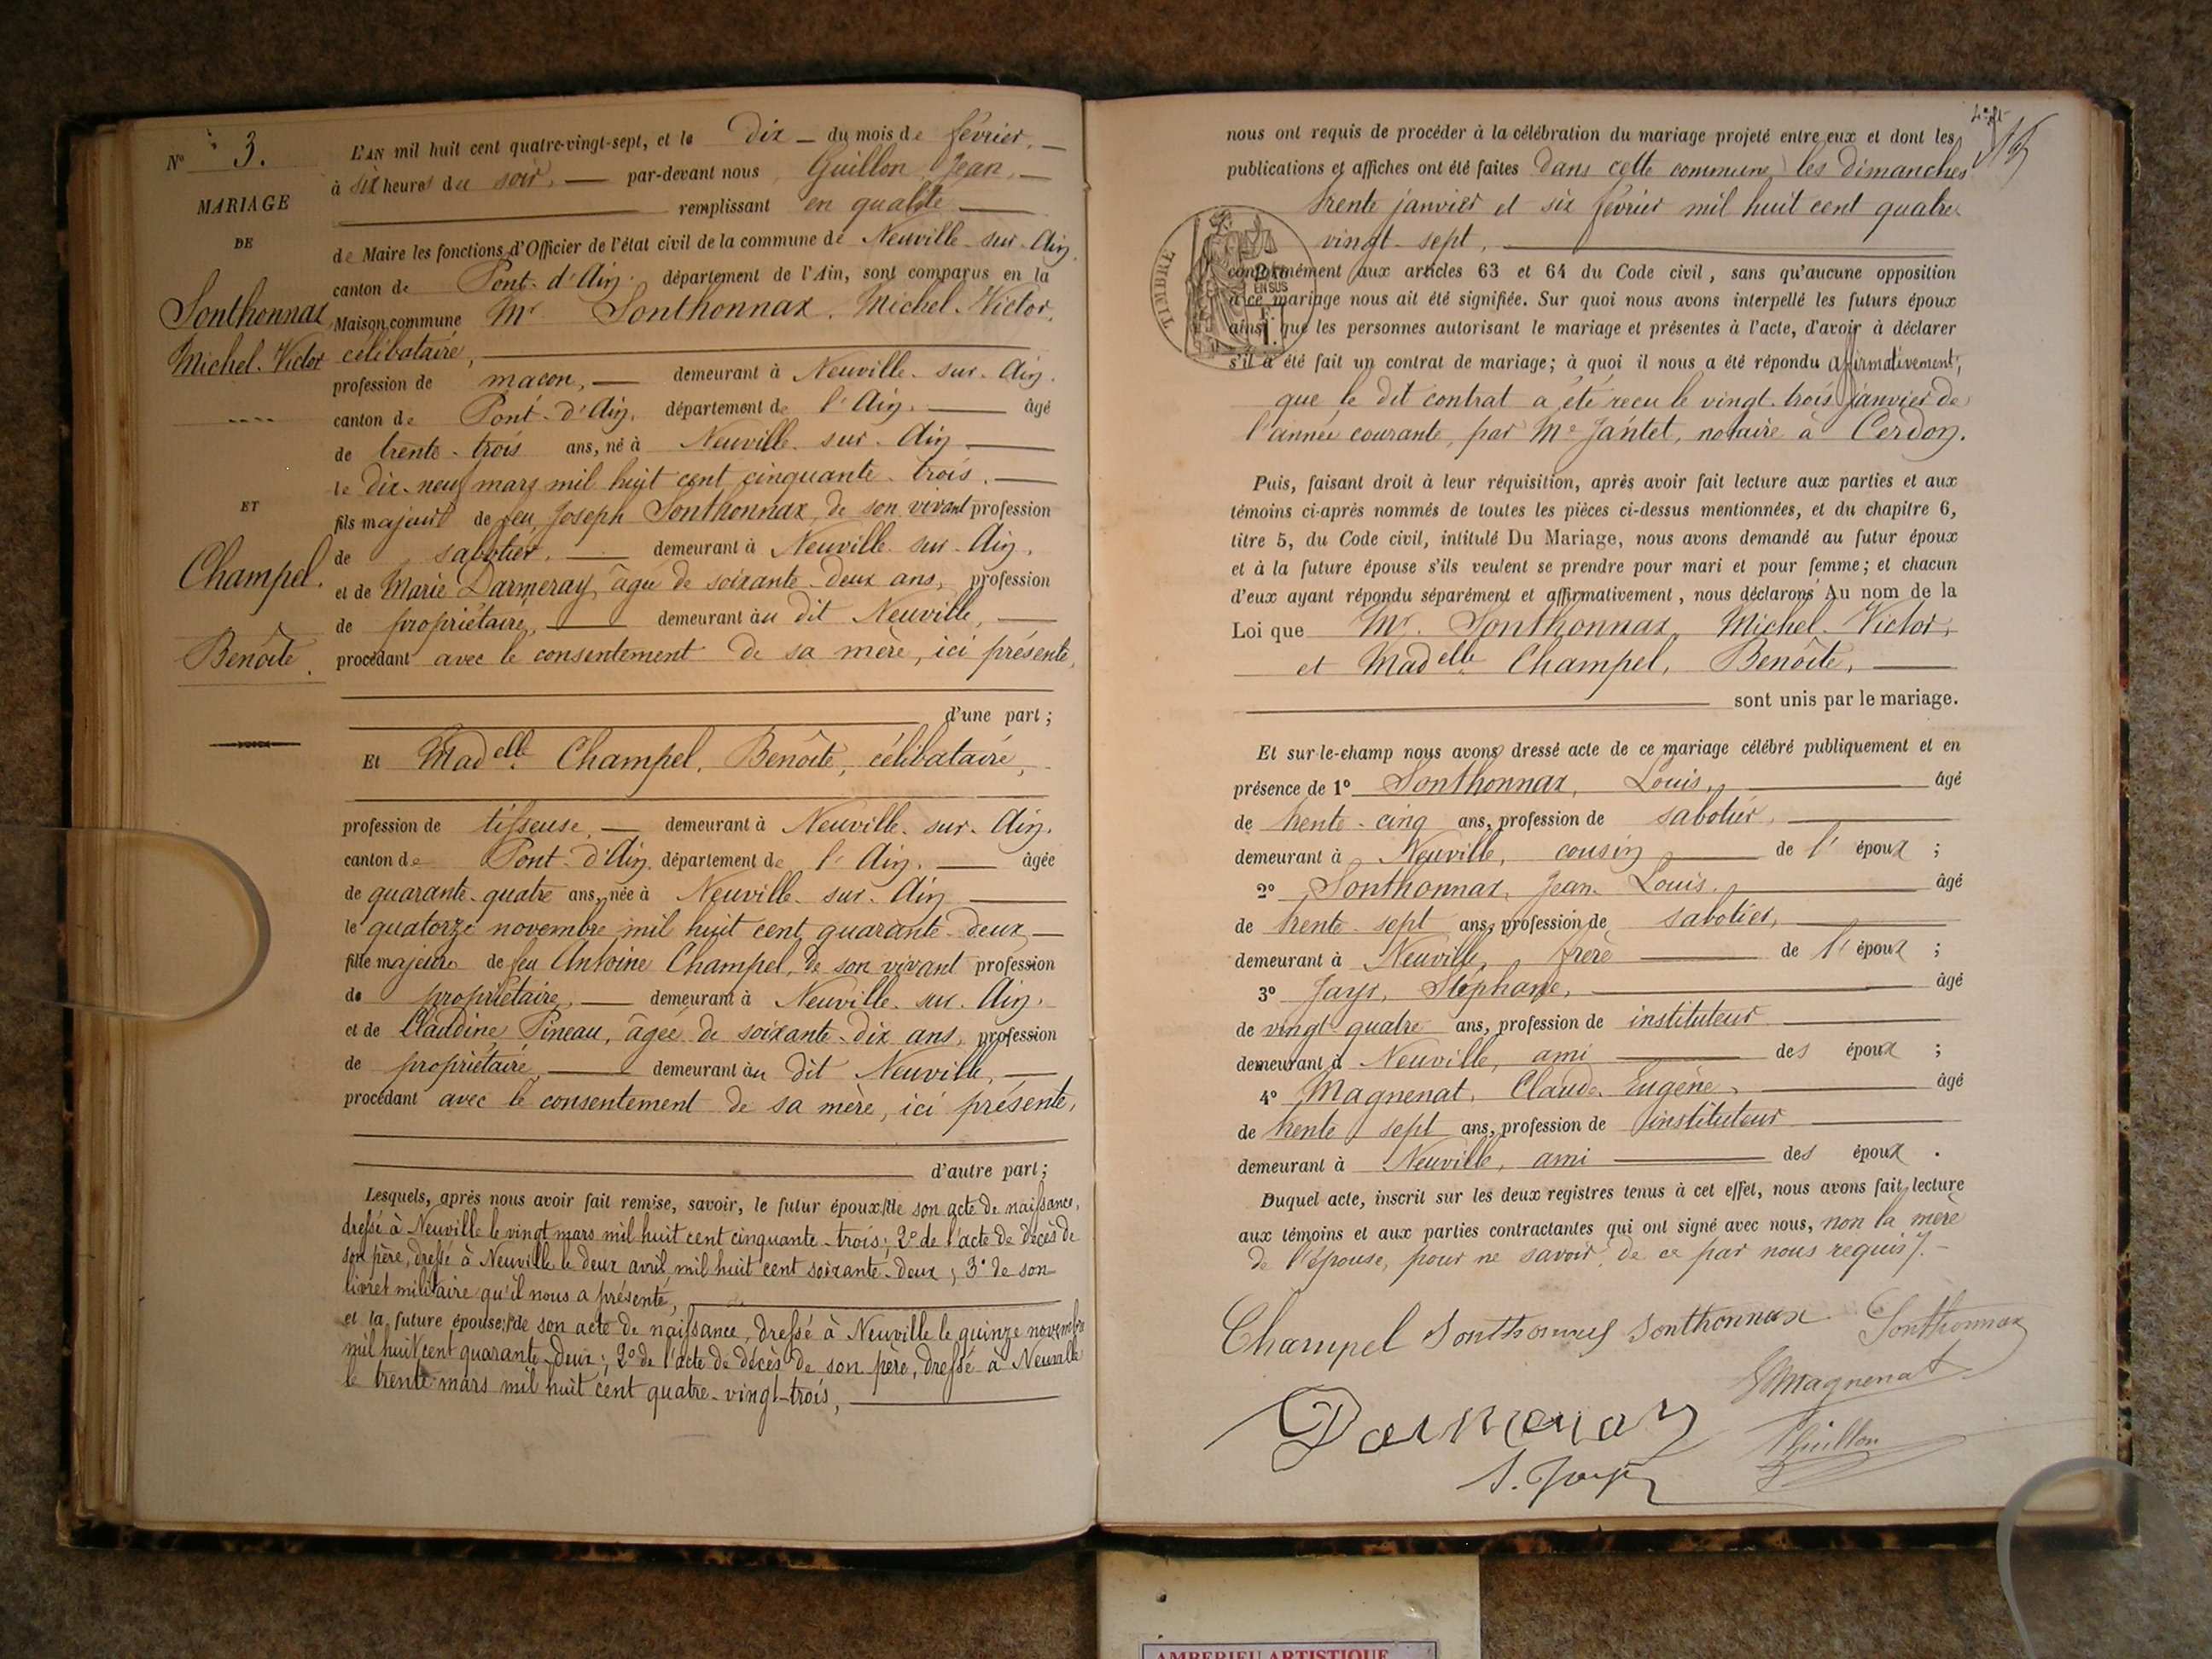 N° 3.
MARIAGE
DE
Sonthonnax
Michel-Victor
ET
Champel.
Benôite.
L'AN mil huit cent quatre-vingt-sept, et le dix du mois de février,
à six heures du soir, par-devant nous Guillon Jean,
remplissant en qualité
de Maire les fonctions d'Officier de l'état civil de la commune de Neuville-sur-Ain,
canton de Pont-d'Ain, département de l'Ain, sont comparus en la
Maison commune Mr Sonthonnax, Michel-Victor,
célibataire,
profession de maçon, demeurant à Neuville-sur-Ain,
canton de Pont-d'Ain, département de l'Ain, âgé
de trente-trois ans, né à Neuville-sur-Ain
le dix-neuf mars mil huit cent cinquante-trois,
fils majeur de feu Joseph Sonthonnax, de son vivant profession
de sabotier, demeurant à Neuville-sur-Ain,
et de Marie Darmeray, âgée de soixante-deux ans, profession
de propriétaire, demeurant au dit Neuville,
procédant avec le consentement de sa mère, ici présente,
d'une part;
Et Madelle Champel, Benôite, célibataire,
profession de tisseuse, demeurant à Neuville-sur-Ain,
canton de Pont-d'Ain, département de l'Ain, âgée
de quarante-quatre ans, née à Neuville-sur-Ain
le quatorze novembre mil huit cent quarante-deux
fille majeure de feu Antoine Champel, de son vivant profession
de propriétaire, demeurant à Neuville-sur-Ain,
et de Claudine Pineau, âgée de soixante-dix ans, profession
de propriétaire, demeurant au dit Neuville,
procédant avec le consentement de sa mère, ici présente,
d'autre part;
Lesquels, après nous avoir fait remise, savoir, le futur époux, 1° de son acte de naissance,
dressé à Neuville le vingt mars mil huit cent cinquante-trois; 2° de l'acte de décès de
son père, dressé à Neuville le deux avril mil huit cent soixante-deux; 3° de son
livret militaire qu'il nous a présenté,
et la future épouse, 1° de son acte de naissance, dressé à Neuville le quinze novembre
mil huit cent quarante-deux; 2° de l'acte de décès de son père, dressé à Neuville
le trente mars mil huit cent quatre-vingt-trois,
nous ont requis de procéder à la célébration du mariage projeté entre eux et dont les
publications et affiches ont été faites dans cette commune, les dimanches
trente janvier et six février mil huit cent quatre-
vingt-sept,
TIMBRE
EN SUS
conformément aux articles 63 et 64 du Code civil, sans qu'aucune opposition
à ce mariage nous ait été signifiée. Sur quoi nous avons interpellé les futurs époux
ainsi que les personnes autorisant le mariage et présentes à l'acte, d'avoir à déclarer
s'il a été fait un contrat de mariage; à quoi il nous a été répondu affirmativement,
que le dit contrat a été reçu le vingt-trois janvier de
l'année courante, par Me Jantet, notaire à Cerdon.
Puis, faisant droit à leur réquisition, après avoir fait lecture aux parties et aux
témoins ci-après nommés de toutes les pièces ci-dessus mentionnées, et du chapitre 6,
titre 5, du Code civil, intitulé Du Mariage, nous avons demandé au futur époux
et à la future épouse s'ils veulent se prendre pour mari et pour femme; et chacun
d'eux ayant répondu séparément et affirmativement, nous déclarons Au nom de la
Loi que Mr. Sonthonnax, Michel-Victor,
et Madelle Champel, Benôite,
sont unis par le mariage.
Et sur-le-champ nous avons dressé acte de ce mariage célébré publiquement et en
présence de 1° Sonthonnax, Louis, âgé
de trente-cinq ans, profession de sabotier,
demeurant à Neuville, cousin de l'époux;
2° Sonthonnax, Jean-Louis, âgé
de trente-sept ans, profession de sabotier,
demeurant à Neuville, frère de l'époux;
3° Jayr, Stéphane, âgé
de vingt-quatre ans, profession de instituteur
demeurant à Neuville, ami des époux;
4° Magnenat, Claude-Eugène, âgé
de trente-sept ans, profession de instituteur
demeurant à Neuville, ami des époux.
Duquel acte, inscrit sur les deux registres tenus à cet effet, nous avons fait lecture
aux témoins et aux parties contractantes qui ont signé avec nous, non la mère
de l'épouse, pour ne savoir, de ce par nous requis.
Champel Sonthonnax Sonthonnax Sonthonnax
Magnenat
Darmeray
Guillon
S. Jayr
AMBERIEU ARTISTIQUE